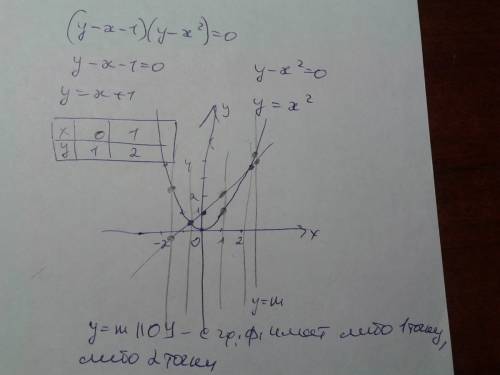 (y-x-1)(y-x²)=0
y-x-1=0
y-x²=0
y=x+1
y=x²
x 0 1
y 1 2
y
4
2
1
-2 0 1 2 x
y=m
y=m || OY – с гр. ф. имеет либо 1 точку,
либо 2 точки